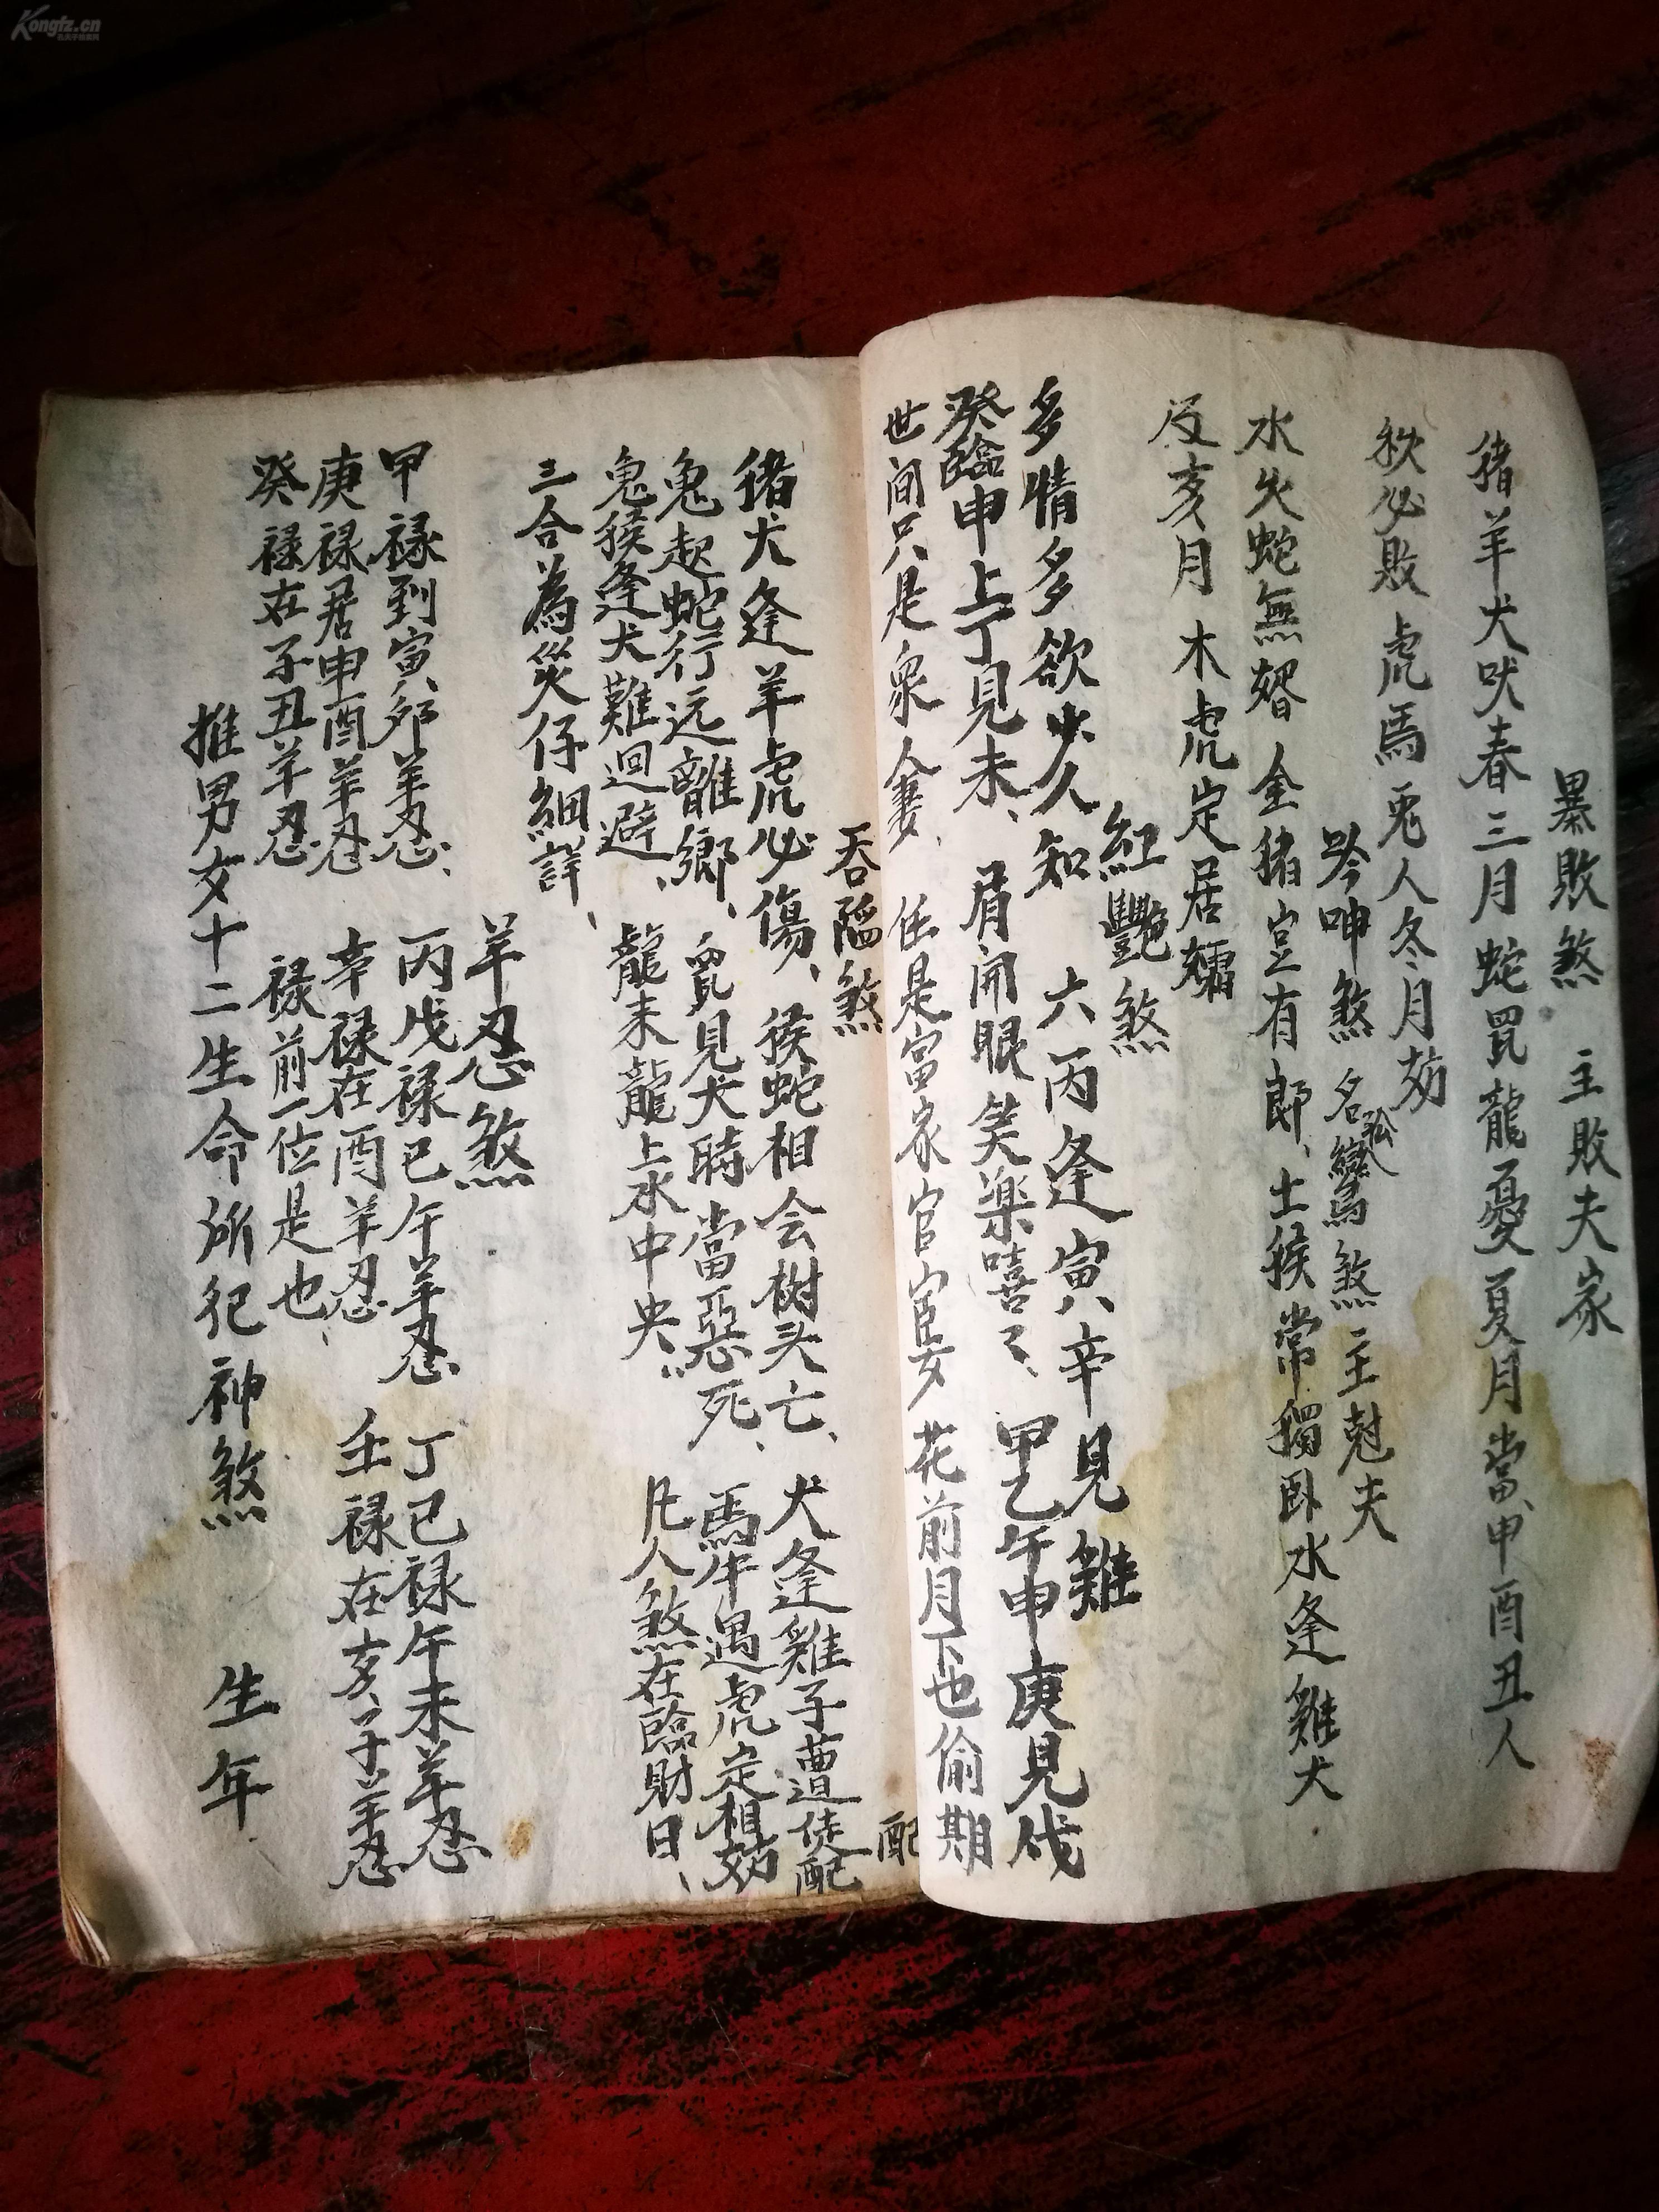 暴敗煞 主敗夫家
猪羊犬吠春三月 蛇鼠龍憂夏月當、申酉丑人
秋必敗 虎馬兎人冬月妨
呻煞 名孤鸞煞 主尅夫
水火蛇無婿 金猪豈有郎、土猴常獨卧 水逢雞犬
及亥月 木虎定居孀
紅艷煞
多情多欲少人知 六丙逢寅八辛見雞
癸臨申上丁見未、 眉开眼笑楽嘻〻、 甲乙午申庚見戌
世间只是衆人妻、 任是富家官宦女 花前月下也偷期
吞陷煞 配
猪犬逢羊虎必傷、 猴蛇相会樹头亡、 犬逢雞子遭徒配
兔起蛇行远離鄉、 鼠見犬時當惡死、 馬牛遇虎定相妨
兔猴逢犬難迴避、 龍来龍上水中央、 凡人煞在臨財日、
三合為災仔細詳、
羊忍煞
甲禄到寅、夘羊忍、 丙戊禄巳午羊忍 丁己禄午未羊忍
庚禄居申酉羊忍 辛禄在酉羊忍 壬禄在亥、子羊忍
癸禄在子丑羊忍 禄前一位是也、
推男女十二生命所犯神煞 生年
Kongfz.cn